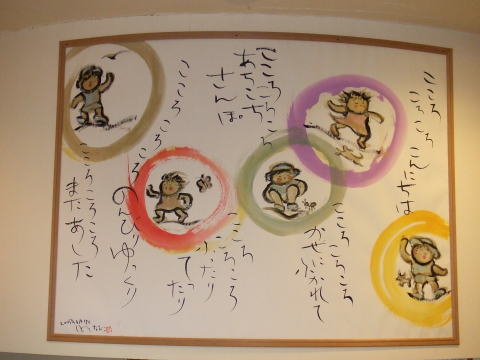 こころ
ころ ころ こんにちは
こころ ころころ
かぜにふかれて
こころころころ
あちこち
さんぽ
こころ ころころ
ふったり
てったり
こころ ころころ
のんびりゆっくり
こころころころ
またあした